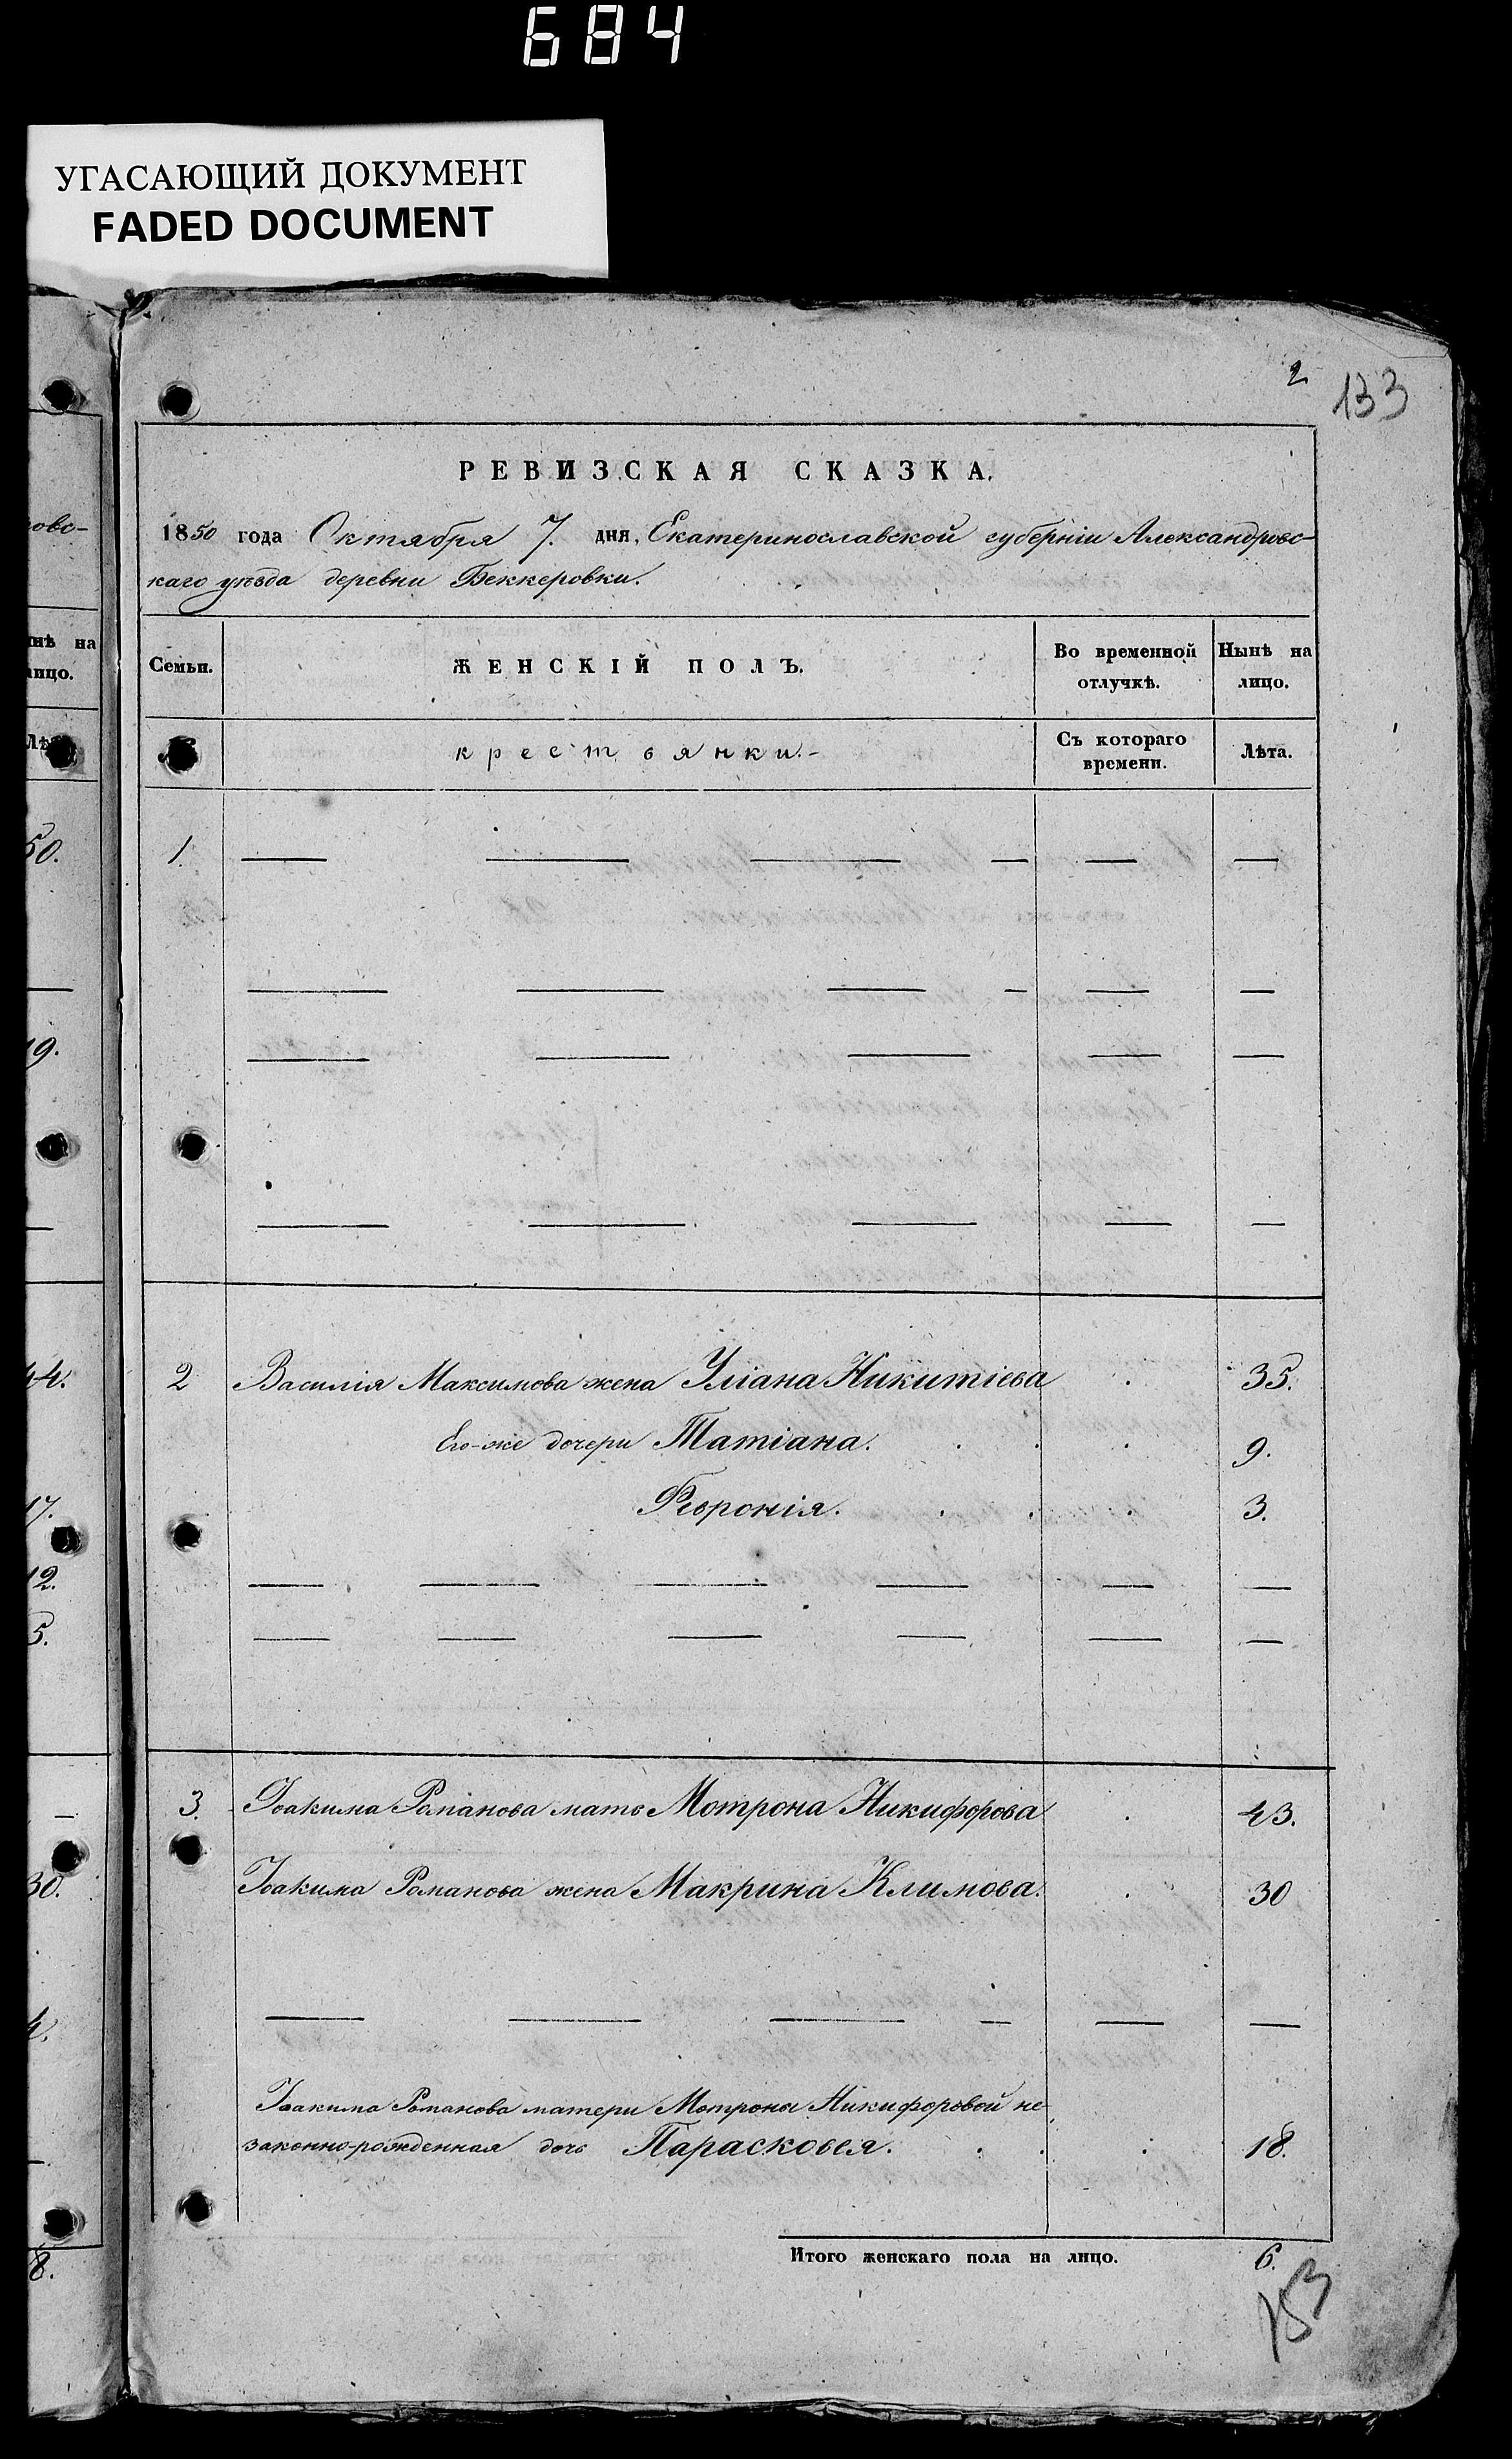 684
УГАСАЮЩИЙ ДОКУМЕНТ
FADED DOCUMENT
2
133
РЕВИЗСКАЯ СКАЗКА.
1850 года Октября 7. дня, Екатеринославской губерніи Александровс-
каго уѣзда деревни Беккеровки.
Семьи.
ЖЕНСКІЙ ПОЛЪ.
Во временной отлучкѣ.
Нынѣ на лицо.
крестьянки.-
Съ котораго времени.
Лѣта.
1.
2 Василія Максимова жена Уліана Никитіева 35.
Его-же дочери Татіана. 9.
Февронія. 3.
3. Іоакима Романова мать Мотрона Никифорова 43.
Іоакима Романова жена Макрина Климова. 30
Іоакима Романова матери Мотроны Никифоровой не-
законно-рожденная дочь Парасковея. 18.
Итого женскаго пола на лицо. 6.
153
овс-
нѣ на
ицо.
Лѣт
50.
19.
44.
17.
12.
5.
30.
4.
8.